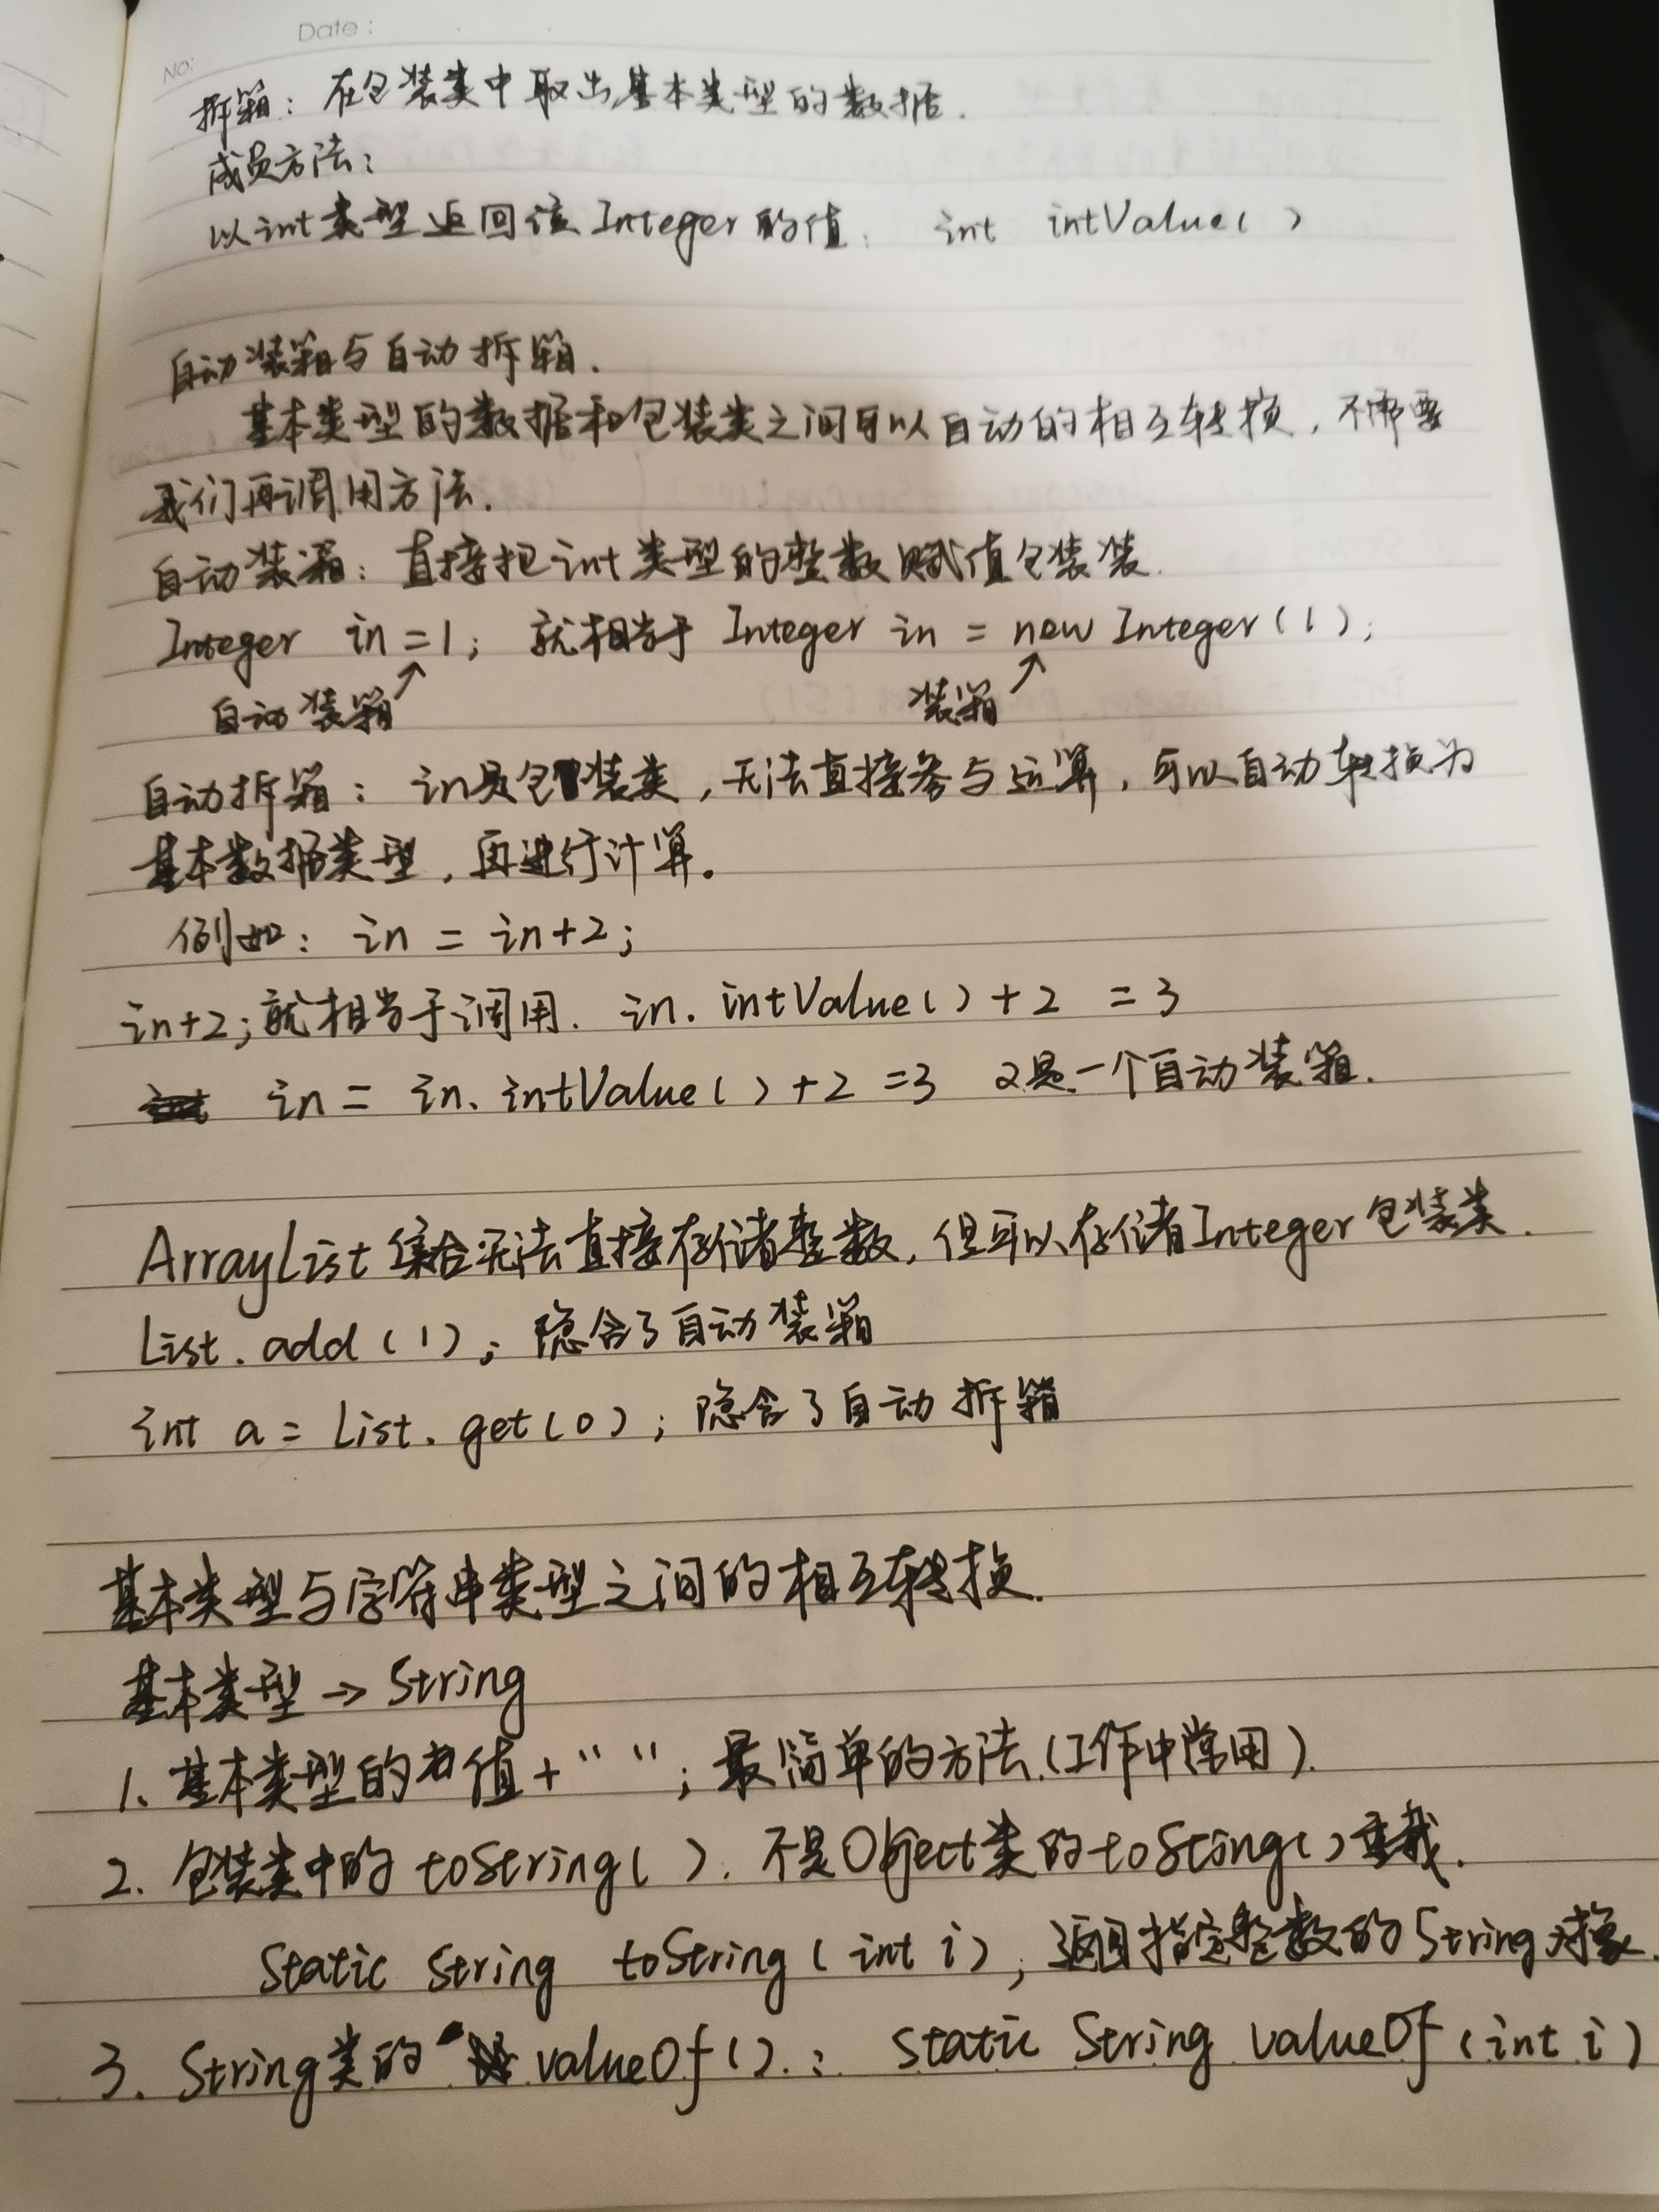 Date:
No:
拆箱：在包装类中取出基本类型的数据.
成员方法：
以int类型返回该Integer的值： int intValue( )
自动装箱与自动拆箱.
基本类型的数据和包装类之间可以自动的相互转换，不需要
我们再调用方法.
自动装箱：直接把int类型的整数赋值包装装.
Integer in = 1; 就相当于 Integer in = new Integer(1);
自动装箱 装箱
自动拆箱：in是包装类，无法直接参与运算，可以自动转换为
基本数据类型，再进行计算。
例如：in = in+2;
in+2;就相当于调用. in. intValue()+2 =3
in = in. intValue( )+2 =3 又是一个自动装箱.
ArrayList集合无法直接存储整数，但可以存储Integer包装类.
List.add(1); 隐含了自动装箱
int a = List.get(0); 隐含了自动拆箱
基本类型与字符串类型之间的相互转换.
基本类型→String
1. 基本类型的值+“ ”; 最简单的方法.(工作中常用).
2. 包装类中的 toString( ). 不是Object类的toSting()重载.
Static String toString(int i); 返回指定整数的String对象.
3. String类的valueOf().: Static String valueOf(int i)